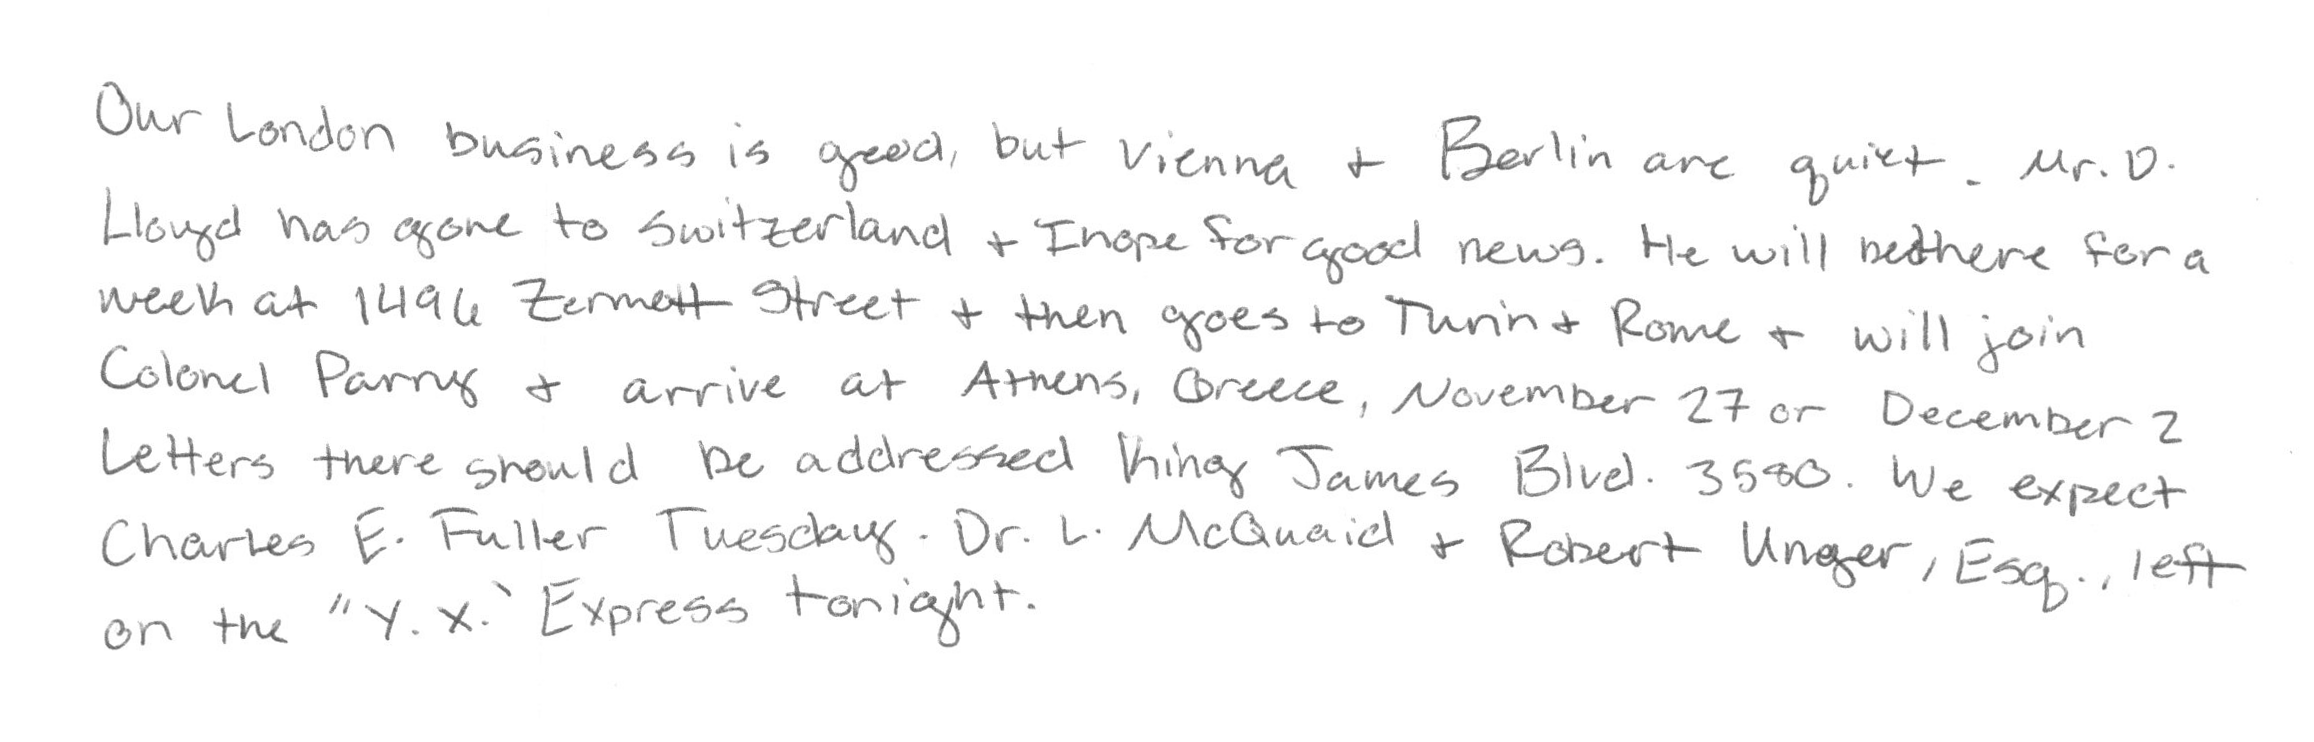 Our London business is good, but Vienna + Berlin are quiet. Mr. D.
Lloyd has gone to Switzerland + I hope for good news. He will be there for a
week at 1496 Zermott Street + then goes to Turin + Rome + will join
Colonel Parry + arrive at Athens, Greece, November 27 or December 2
Letters there should be addressed King James Blvd. 3580. We expect
Charles E. Fuller Tuesday. Dr. L. McQuaid + Robert Unger, Esq., left
on the "Y. X." Express tonight.